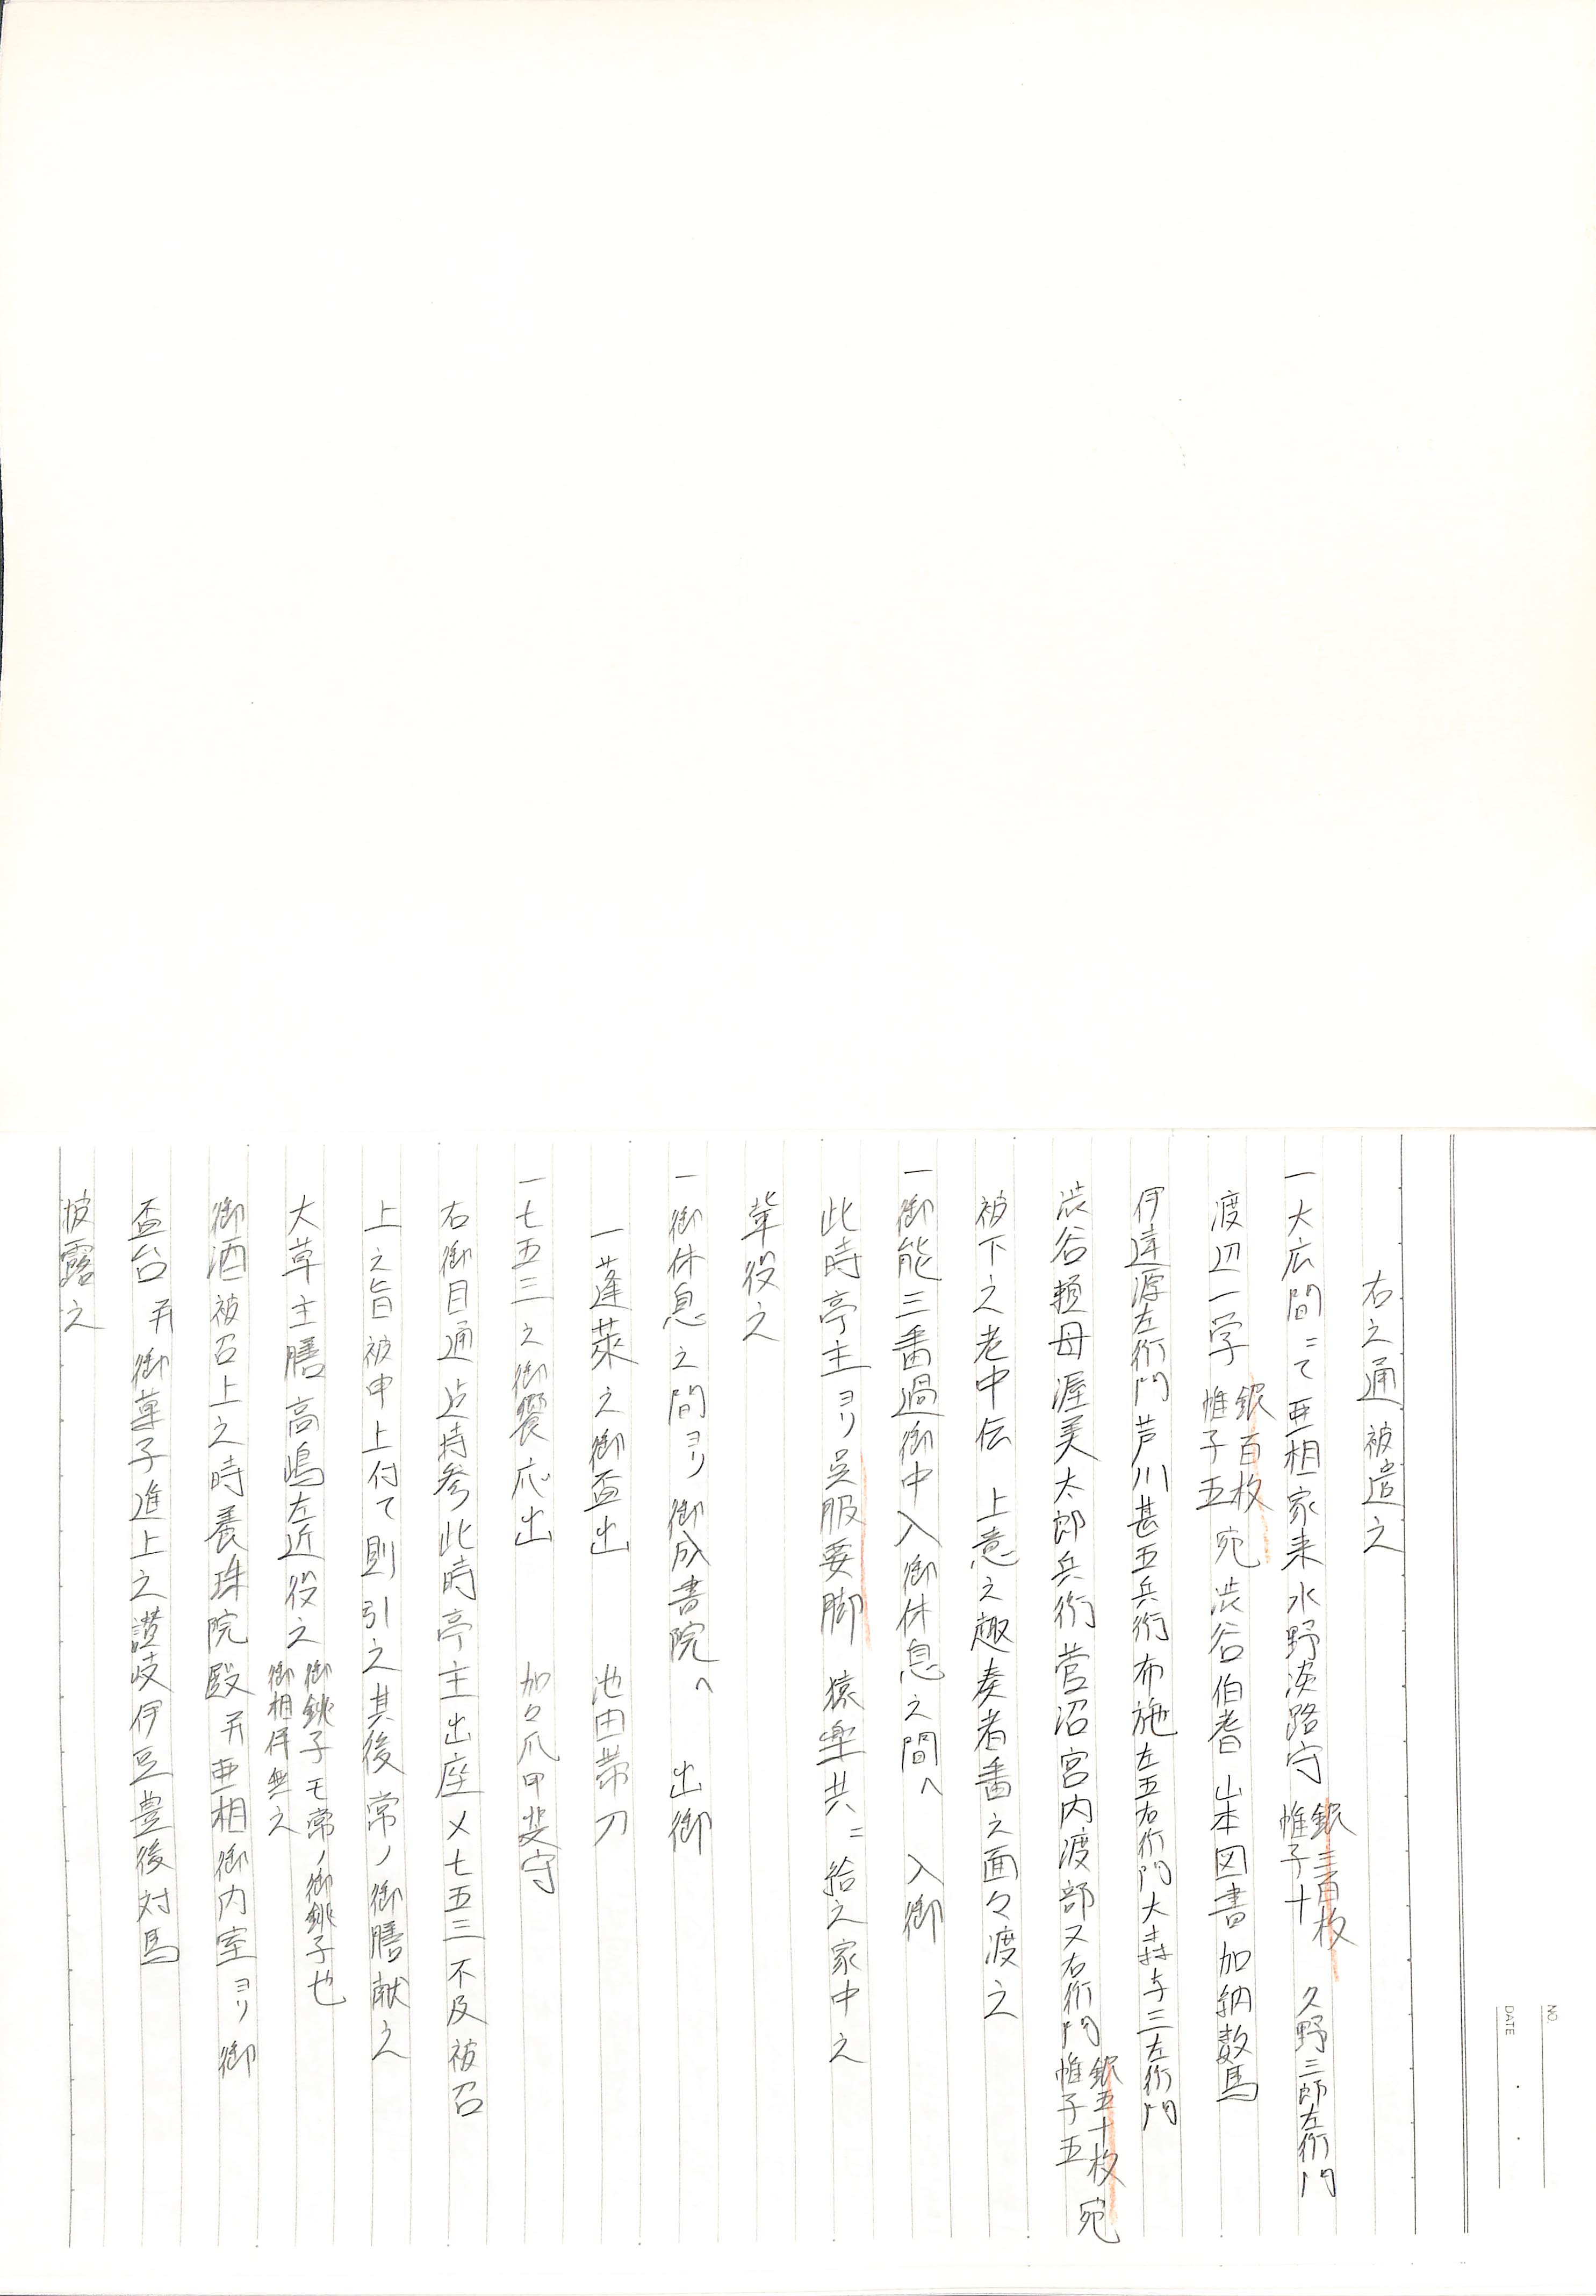 NO.
DATE
右之通被遣之
一大広間ニて亜相家来水野淡路守 銀三百枚 帷子十 久野三郎左衛門
渡辺一学 銀百枚 帷子五 宛 渋谷伯耆 山本図書 加納数馬
伊達源左衛門芦川甚五兵衛布施左五右衛門大井与三左衛門
渋谷頼母渥美太郎兵衛菅沼宮内渡部又右衛門 銀五十枚 帷子五 宛
被下之老中伝 上意之趣奏者番之面々渡之
一御能三番過御中入御休息之間へ 入御
此時亭主ヨリ呉服要脚 猿楽共ニ給之家中之
輩役之
一御休息之間ヨリ 御成書院へ 出御
一蓬莱之御盃出 池田帯刀
一七五三之御饗応出 加々爪甲斐守
右御目通迄持参此時亭主出座〆七五三不及被召
上之旨被申上付て則引之其後常ノ御膳献之
大草主膳高嶋左近役之 御銚子モ常ノ御銚子也 御相伴無之
御酒被召上之時養珠院殿并亜相御内室ヨリ御
盃台并御菓子進上之讃岐伊豆豊後対馬
披露之